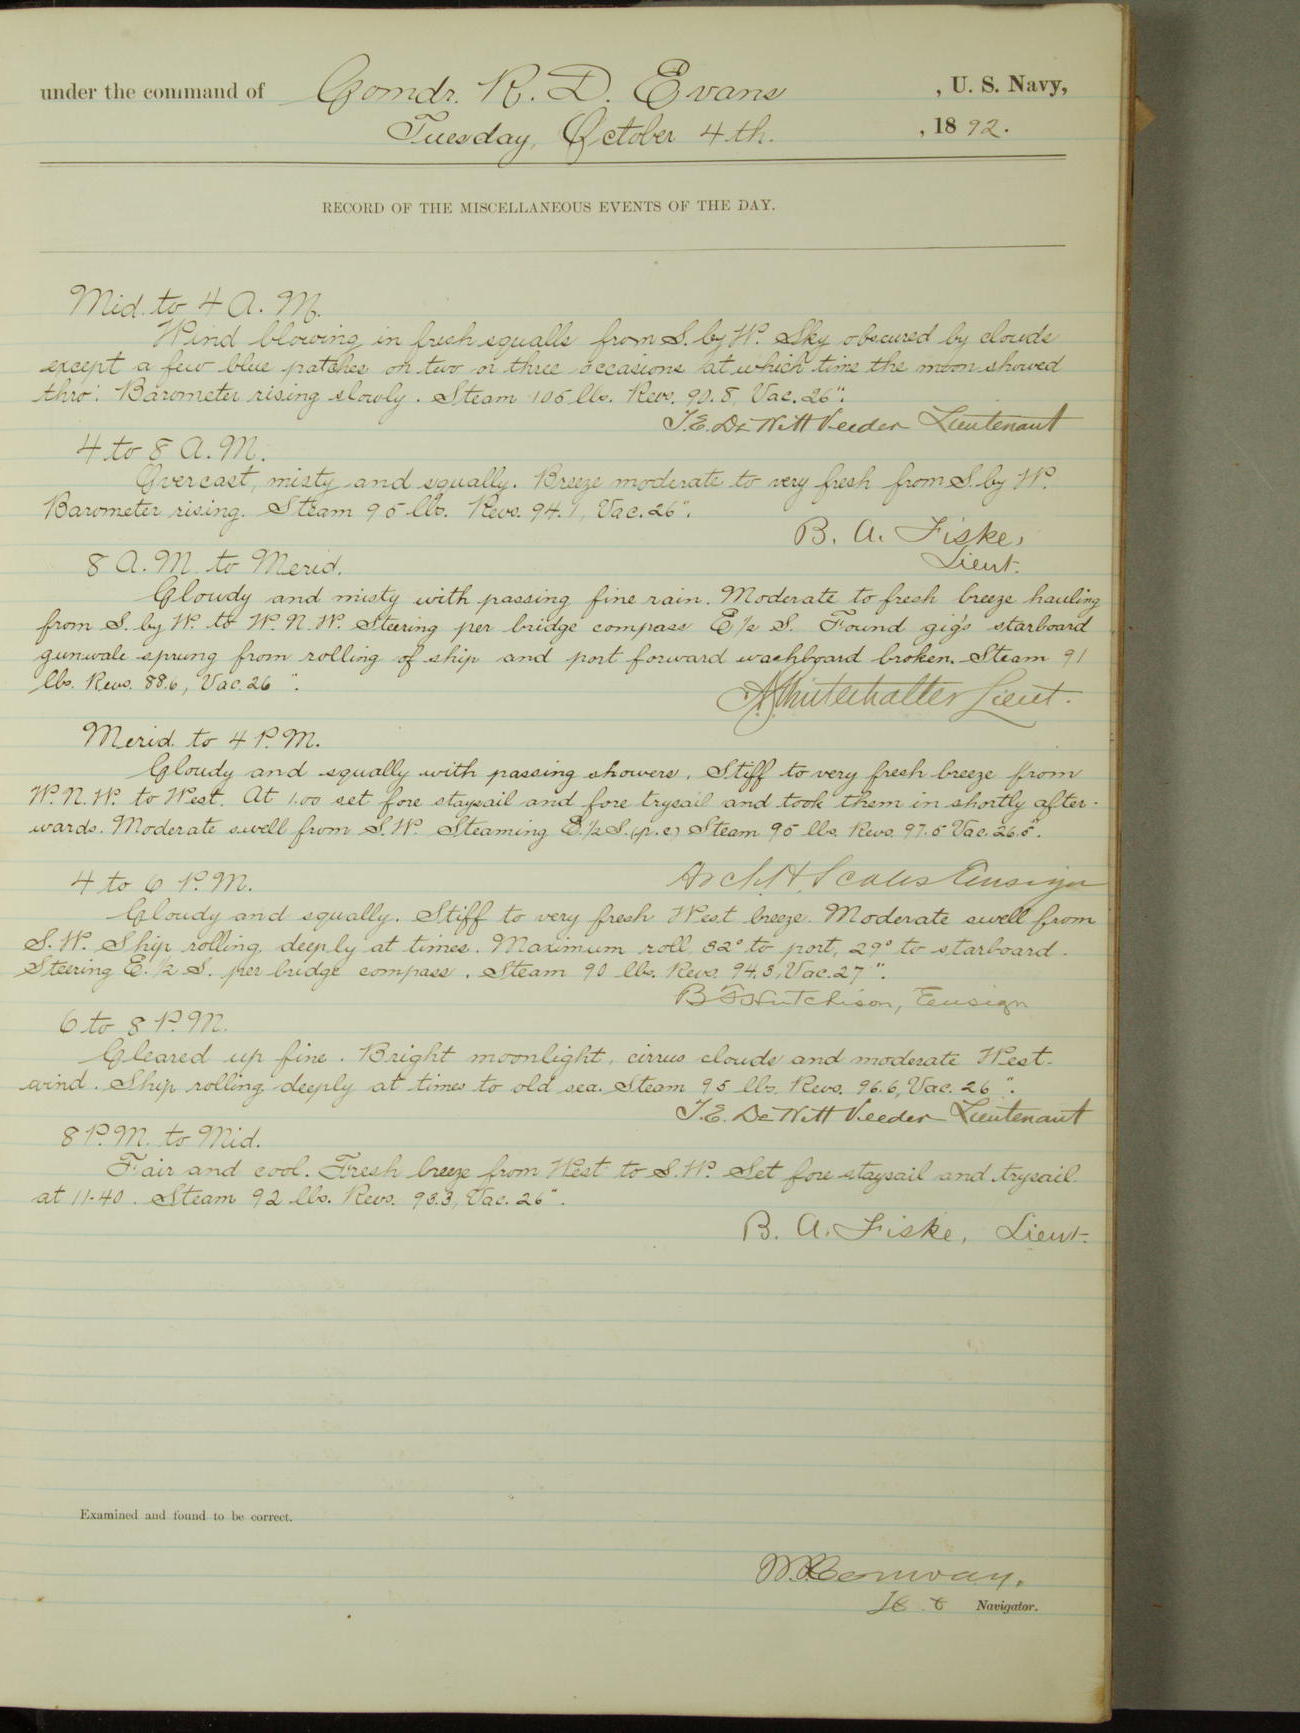 under the command of Comdr. R. D. Evans, U. S. Navy,
Tuesday, October 4th. , 1892.
RECORD OF THE MISCELLANEOUS EVENTS OF THE DAY.
Mid. to 4 A. M.
Wind blowing in fresh squalls from S. by W. Sky obscured by clouds
except a few blue patches on two or three occasions at which time the moon showed
thro'. Barometer rising slowly. Steam 105 lbs. Revs. 90.8, Vac. 26".
T.E. DeWitt Veeder Lieutenant
4 to 8 A. M.
Overcast, misty and squally. Breeze moderate to very fresh from S. by W.
Barometer rising. Steam 95 lbs. Revs. 94.1, Vac. 26".
B. A. Fiske,
Lieut.
8 A. M. to Merid.
Cloudy and misty with passing fine rain. Moderate to fresh breeze hauling
from S. by W. to W. N. W. Steering per bridge compass E ½ S. Found gig's starboard
gunwale sprung from rolling of ship and port forward washboard broken. Steam 91
lbs. Revs. 88.6, Vac. 26 ".
A.G. Winterhalter Lieut.
Merid. to 4 P. M.
Cloudy and squally with passing showers. Stiff to very fresh breeze from
W. N. W. to West. At 1.00 set fore staysail and fore trysail and took them in shortly after-
wards. Moderate swell from S. W. Steaming E. ½ S. (p.c) Steam 95 lbs. Revs. 97.5 Vac. 26.5".
Arch. H. Scales Ensign
4 to 6 P. M.
Cloudy and squally. Stiff to very fresh West breeze. Moderate swell from
S. W. Ship rolling deeply at times. Maximum roll, 32° to port, 29° to starboard.
Steering E. ½ S. per bridge compass. Steam 90 lbs. Revs. 94.3, Vac. 27 ".
B F Hutchison, Ensign
6 to 8 P. M.
Cleared up fine. Bright moonlight, cirrus clouds and moderate West
wind. Ship rolling deeply at times to old sea. Steam 95 lbs. Revs. 96.6, Vac. 26 ".
T.E. DeWitt Veeder Lieutenant
8 P. M. to Mid.
Fair and cool. Fresh breeze from West to S. W. Set fore staysail and trysail
at 11-40. Steam 92 lbs. Revs. 93.3, Vac. 26".
B. A. Fiske, Lieut.
Examined and found to be correct.
Conway,
Navigator.